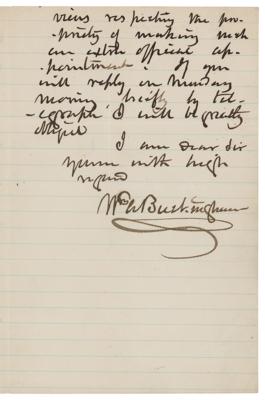 views respecting the pro-
-priety of making such
an extra official ap-
-pointment. If you
will reply on Monday
morning, briefly by tel-
-egraph, I will be greatly
obliged
I am dear sir
yours with high
regard
Wm A Buckingham